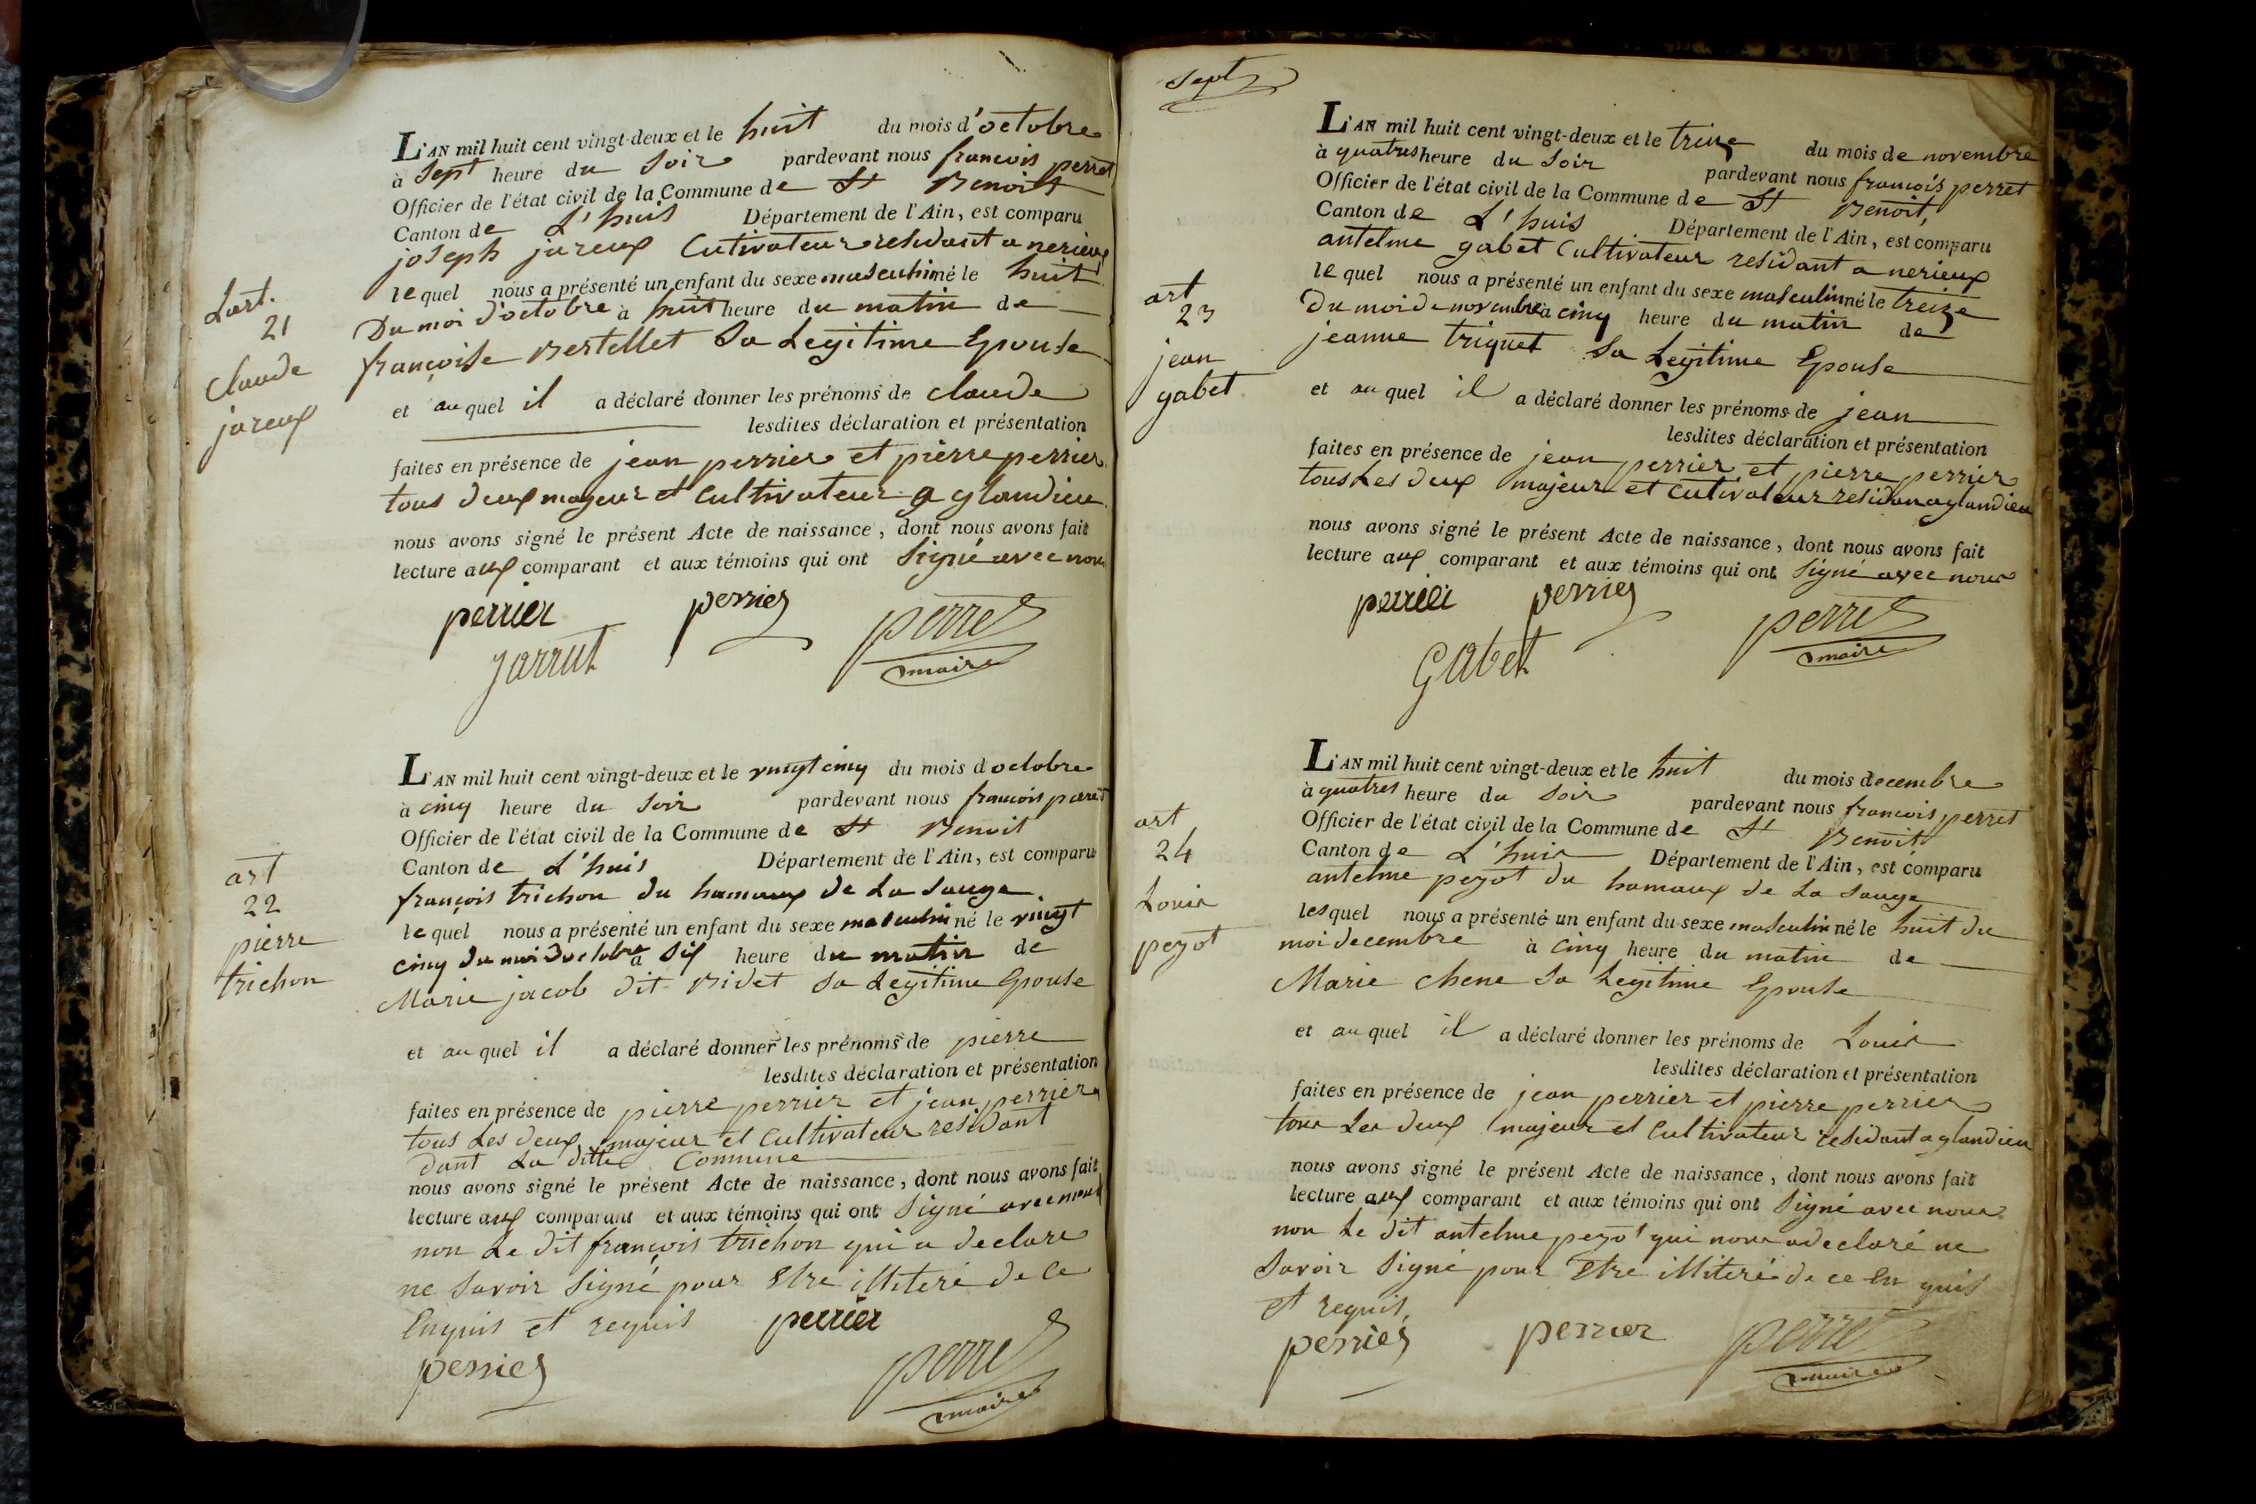 L'art.
21
claude
jareux
L'AN mil huit cent vingt-deux et le huit du mois d'octobre
à sept heure du soir pardevant nous francois perret
Officier de l'état civil de la Commune de St Benoit
Canton de L'huis Département de l'Ain, est comparu
joseph jareux Cutivateur residant a nerieux
le quel nous a présenté un enfant du sexe masculin né le huit
Du moi d'octobre à huit heure du matin de
françoise Bertellet Sa Legitime Epouse
et au quel il a déclaré donner les prénoms de claude
lesdites déclaration et présentation
faites en présence de jean perrier et pierre perrier
tous deux majeur et Cultivateur a glandieu
nous avons signé le présent Acte de naissance, dont nous avons fait
lecture aux comparant et aux témoins qui ont Signé avec nous
perrier perrier perret
jarrut maire
art
22
pierre
trichon
L'AN mil huit cent vingt-deux et le vingt cinq du mois d octobre
à cinq heure du soir pardevant nous francois perret
Officier de l'état civil de la Commune de St Benoit
Canton de L'huis Département de l'Ain, est comparu
françois trichon du hamaux de La Sauge
le quel nous a présenté un enfant du sexe masculin né le vingt
cinq du moi Doctobre a six heure du matin de
Marie jacob dit Bidet Sa Legitime Epouse
et au quel il a déclaré donner les prénoms de pierre
lesdites déclaration et présentation
faites en présence de pierre perrier et jean perrier
tous Les deux majeur et Cultivateur residant
dant La ditte Commune
nous avons signé le présent Acte de naissance, dont nous avons fait
lecture aux comparant et aux témoins qui ont Signé avec nous
non Le Dit françois trichon qui a declare
ne Savoir Signé pour Etre illiteré de ce
Enquis et requis perrier
perrier perret
maire
Sept
art
23
jean
gabet
L'AN mil huit cent vingt-deux et le treize du mois de novembre
à quatres heure du Soir pardevant nous françois perret
Officier de l'état civil de la Commune de St Benoit,
Canton de L'huis Département de l'Ain, est comparu
antelme gabet Cultivateur residant a nerieux
le quel nous a présenté un enfant du sexe masculin né le treize
Du moi de novembre a cinq heure du matin de
jeanne triquet Sa Legitime Epouse
et au quel il a déclaré donner les prénoms de jean
lesdites déclaration et présentation
faites en présence de jean perrier et pierre perrier
tous Les deux majeur et Cutivateur residan a glandieu
nous avons signé le présent Acte de naissance, dont nous avons fait
lecture aux comparant et aux témoins qui ont Signé avec nous
perrier perrier perret
Gabet maire
art
24
Louis
pezot
L'AN mil huit cent vingt-deux et le huit du mois decembre
à quatres heure du Soir pardevant nous francois perret
Officier de l'état civil de la Commune de St Benoit
Canton de L'huis Département de l'Ain, est comparu
antelme pezot du hamaux de La Sauge
lesquel nous a présenté un enfant du sexe masculin né le huit du
moi decembre à cinq heure du matin de
Marie chene Sa Legitime Epouse
et au quel il a déclaré donner les prénoms de Louis
lesdites déclaration et présentation
faites en présence de jean perrier et pierre perrier
tous Les deux majeur et Cultivateur residant a glandieu
nous avons signé le présent Acte de naissance, dont nous avons fait
lecture aux comparant et aux témoins qui ont Signé avec nous
non Le dit antelme pezot qui nous a declaré ne
Savoir Signé pour Etre illiteré de ce En quis
et requis,
perrier perrier perret
maire